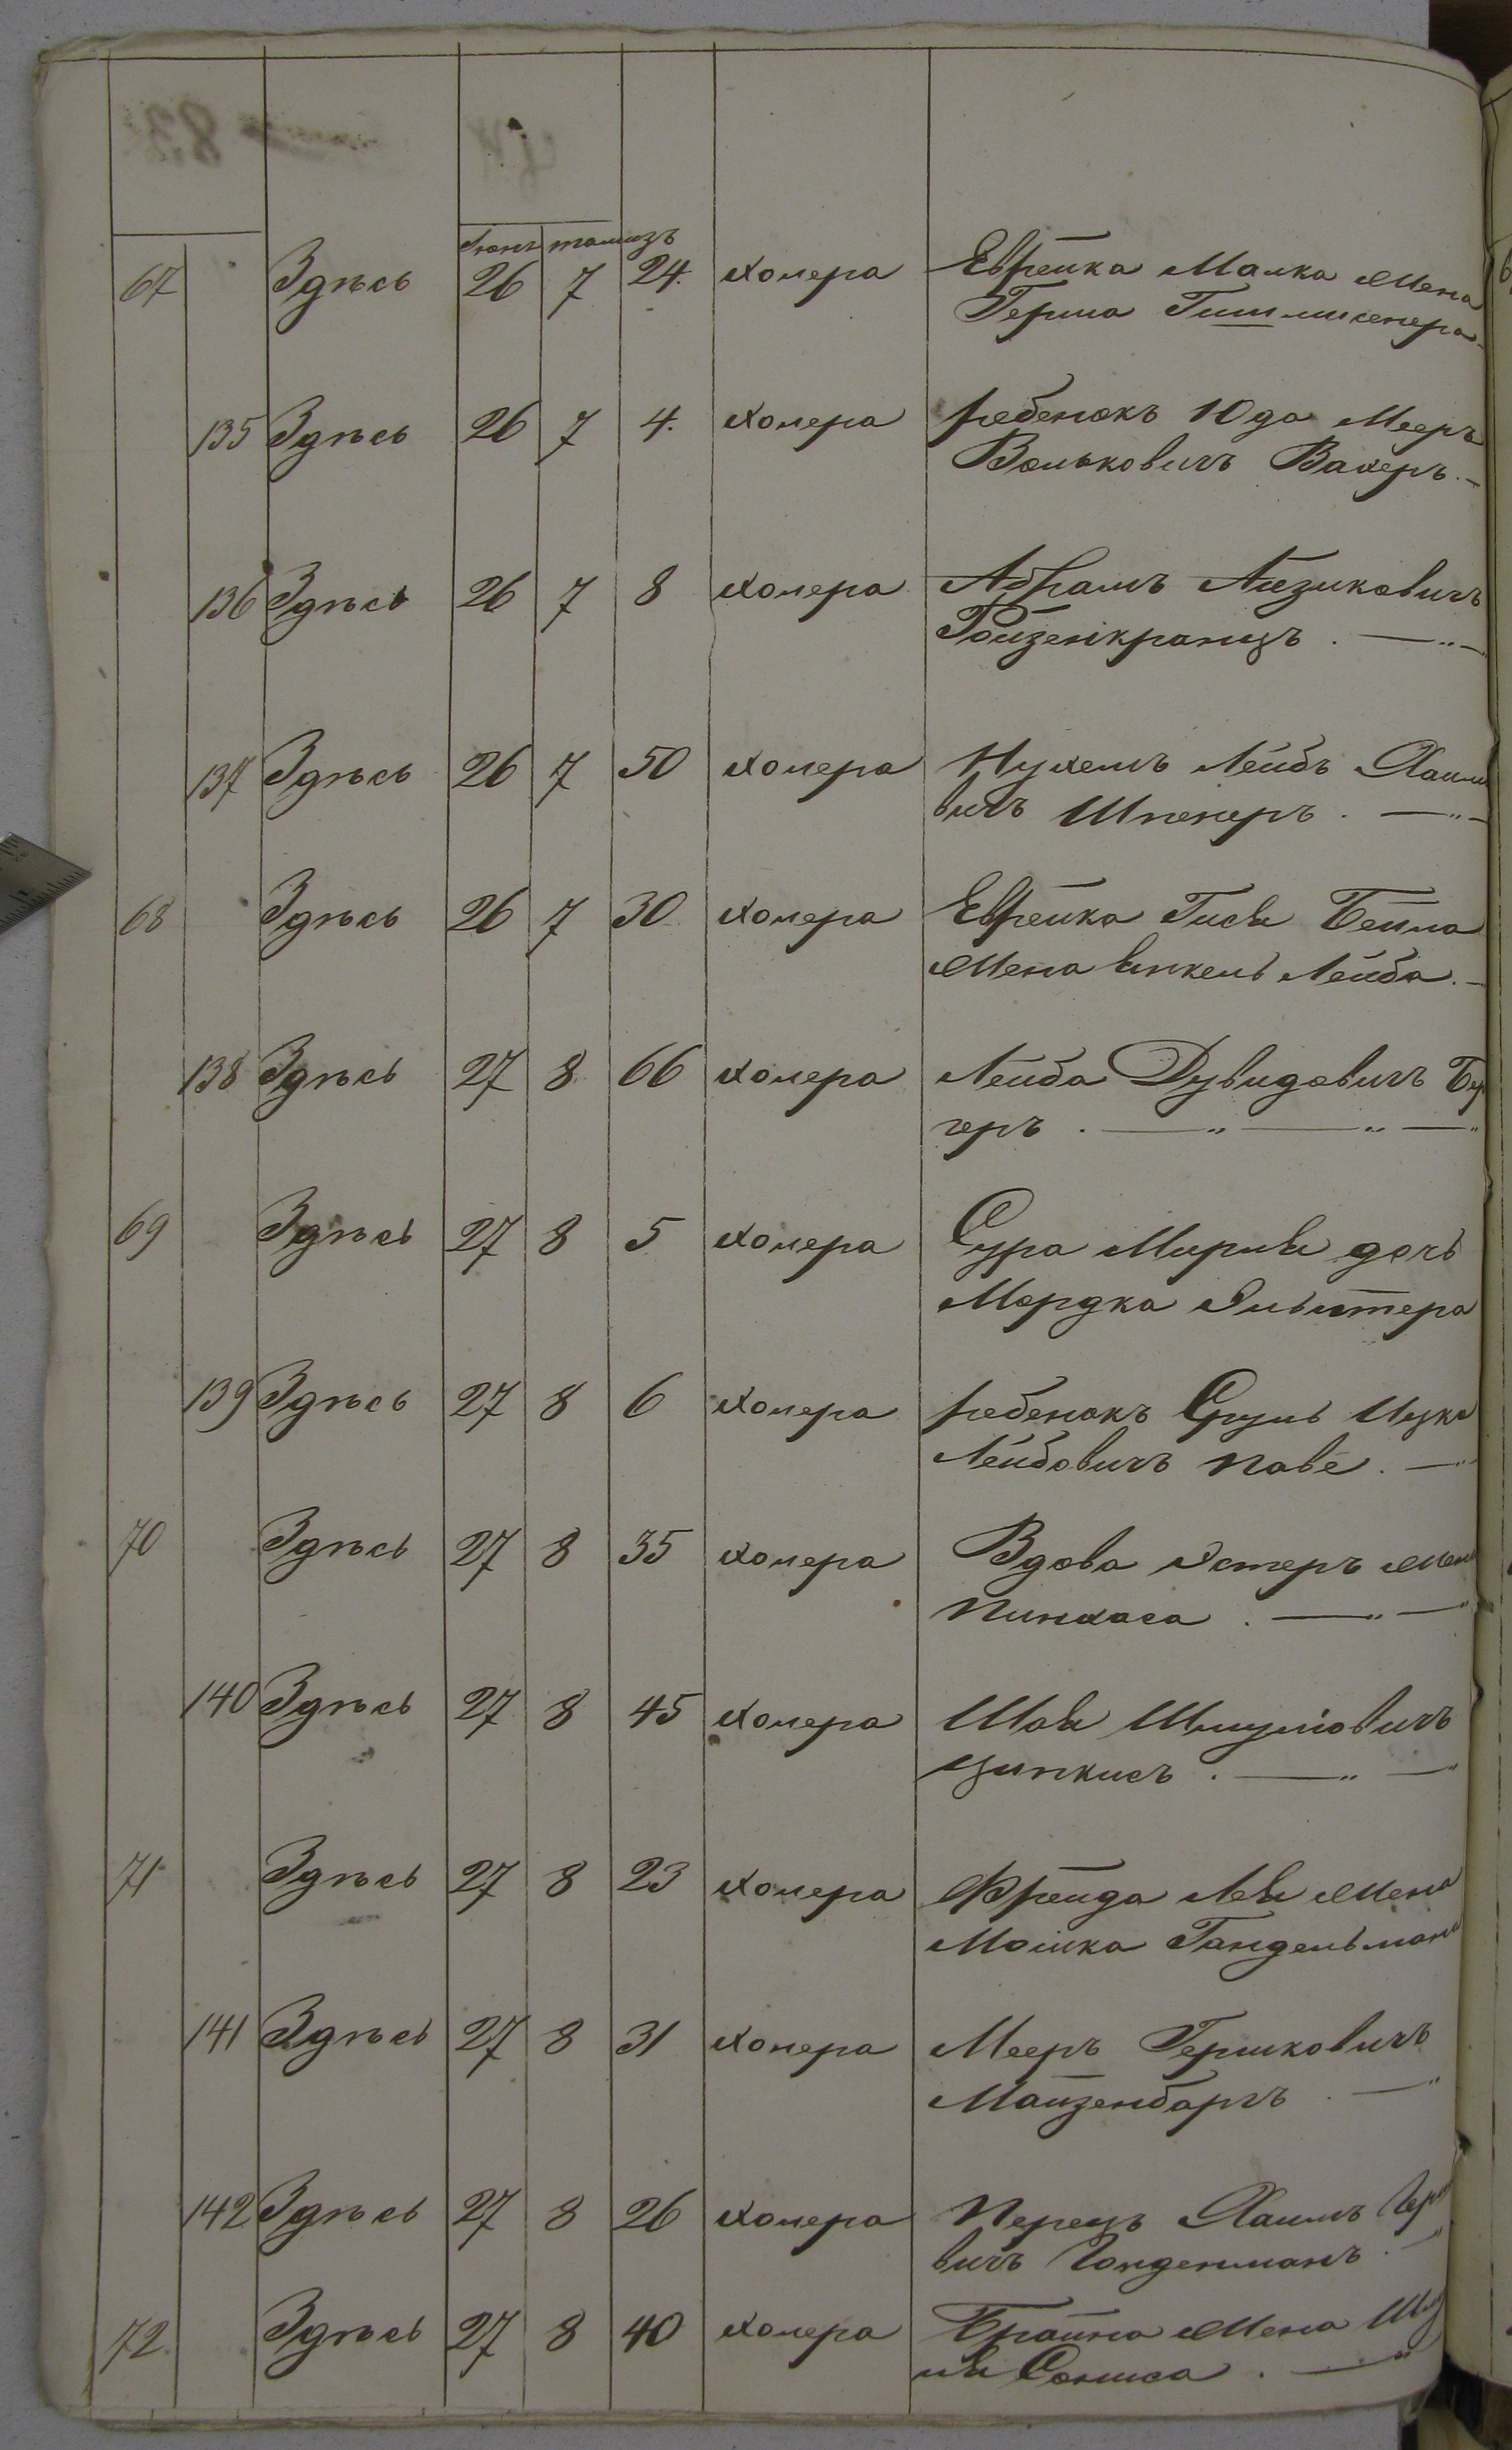 Іюнь тамизъ
67 Здѣсь 26 7 24. холера Еврейка Малка жена
Герша
135 Здѣсь 26 7 4. холера ребенокъ Юда Мееръ
Вольковичъ Вахеръ.
136 Здѣсь 26 7 8 холера Абрамъ Айзиковичъ
Ройзенкранцъ.
137 Здѣсь 26 7 50 холера Нухемъ Лейбъ Хаимо
вичъ Шпенеръ.
68 Здѣсь 26 7 30 холера Еврейка Бейла
жена Лейба.
138 Здѣсь 27 8 66 холера Лейба Дувидовичъ
геръ.
69 Здѣсь 27 8 5 холера Сура Мирля дочь
Мордка
139 Здѣсь 27 8 6 холера ребенокъ Сруль Ицко
Лейбовичъ паве.
70 Здѣсь 27 8 35 холера Вдова Эстеръ жена
Пинхаса.
140 Здѣсь 27 8 45 холера Шая Шмулiовичъ
Ципкисъ.
71 Здѣсь 27 8 23 холера Фрейда Лея жена
Мошка Гандельмана
141 Здѣсь 27 8 31 холера Мееръ Гершковичъ
Майзенбаргъ
142 Здѣсь 27 8 26 холера Перецъ Хаимъ
вичъ Голденманъ.
72. Здѣсь 27 8 40 холера Брайна жена